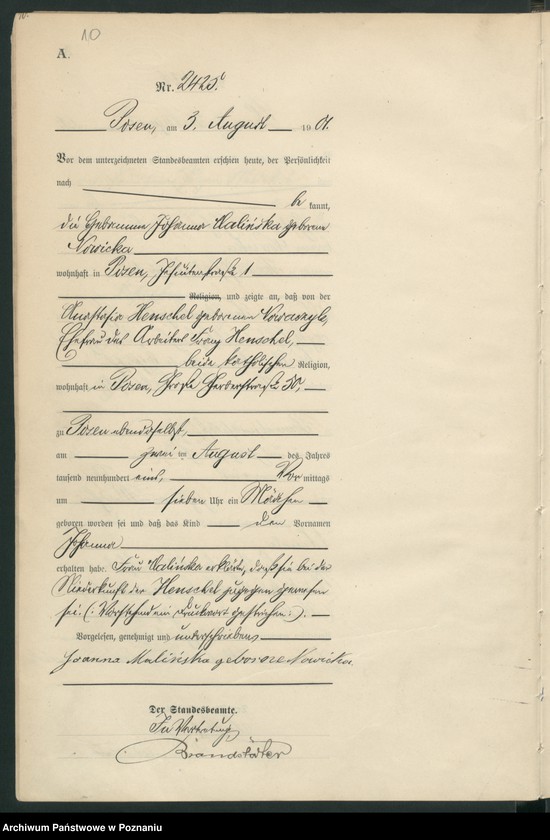 10
A.
Nr. 2425.
Posen, am 3. August 1901.
Vor dem unterzeichneten Standesbeamten erschien heute, der Persönlichkeit
nach
be kannt,
die Hebamme Johanna Malińska geborene
Nowicka
wohnhaft in Posen, Jesuitenstraße 1
Religion, und zeigte an, daß von der
Anastasia Henschel geborenen
Ehefrau des Arbeiters Franz Henschel,
beide katholischen Religion,
wohnhaft in Posen, Große Gerberstraße 50,
zu Posen ebendaselbst,
am zwei ten August des Jahres
tausend neunhundert eins, Vor mittags
um sieben Uhr ein Mädchen
geboren worden sei und daß das Kind den Vornamen
Johanna
erhalten habe. Frau Malińska erklärte, daß sie bei der
Niederkunft der Henschel zugegen gewesen
sei. (: Vorstehend ein Druckwort gestrichen :).
Vorgelesen, genehmigt und unterschrieben
Joanna Malińska geborene Nowicka
Der Standesbeamte.
In Vertretung
Brandstäter
Archiwum Państwowe w Poznaniu